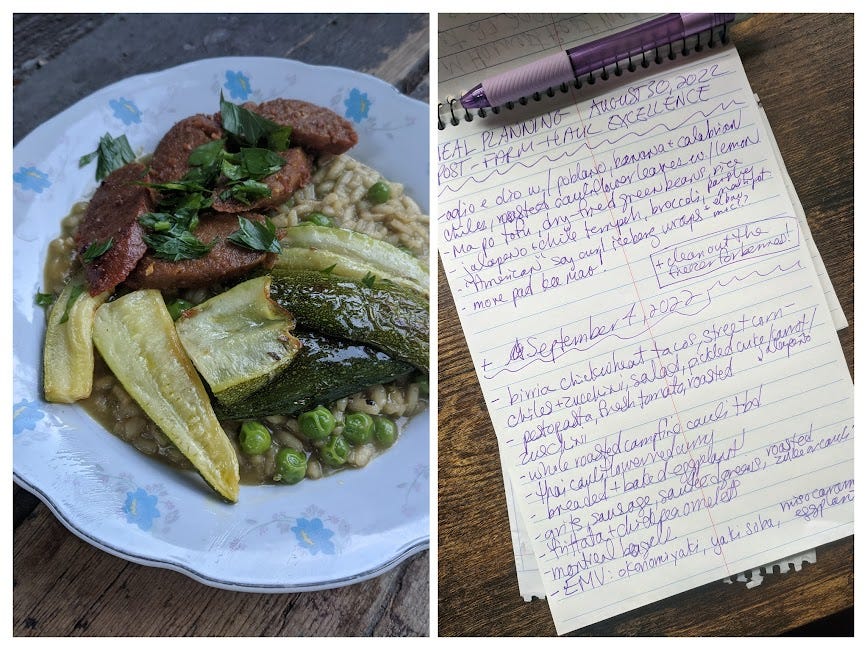 MEAL PLANNING AUGUST 30, 2022
POST-FARM-HAUL EXCELLENCE
-aglio e olio w/ poblano, banana + calabrian
chiles, roasted cauliflower leaves w/ lemon
- Ma po tofu, dry-fried green beans, rice
- jalapeno + chile tempeh, broccoli,
- "American" soy curl iceberg wraps
- more pad kee mao!
+ clean out the
freezer for bennos!
+ September 4, 2022
- birria chickwheat tacos, street corn-
chiles + zucchini, salad, pickled cuke/carrot/
jalapeño
- pesto pasta, fresh tomato, roasted
zucchini
- whole roasted campfire cauli tbd
- thai cauliflower red curry
- breaded + baked eggplant
- grits, sausage, sauce, greens, roasted
- frittata + chickpea omelets
- montreal bagels
- EMV: okonomiyaki, yaki soba, miso caram
eggplan